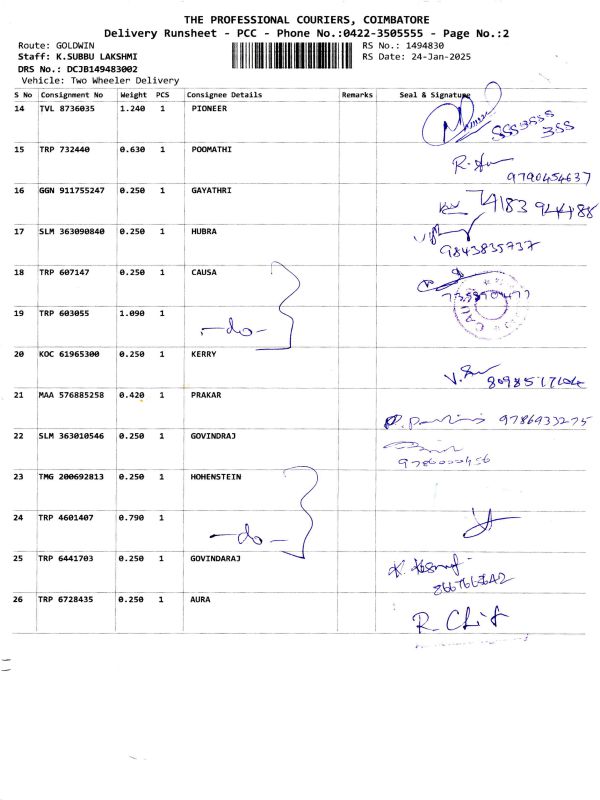 THE PROFESSIONAL COURIERS, COIMBATORE
Delivery Runsheet - PCC - Phone No.:0422-3505555 - Page No.:2
Route: GOLDWIN RS No.: 1494830
Staff: K.SUBBU LAKSHMI RS Date: 24-Jan-2025
DRS No.: DCJB149483002
Vehicle: Two Wheeler Delivery
S No Consignment No Weight PCS Consignee Details Remarks Seal & Signature
14 TVL 8736035 1.240 1 PIONEER
15 TRP 732440 0.630 1 POOMATHI
9790454637
16 GGN 911755247 0.250 1 GAYATHRI
17 SLM 363090840 0.250 1 HUBRA
9843835737
18 TRP 607147 0.250 1 CAUSA
19 TRP 603055 1.090 1 -do-
20 KOC 61965300 0.250 1 KERRY
21 MAA 576885258 0.420 1 PRAKAR
9786933275
22 SLM 363010546 0.250 1 GOVINDRAJ
9786000456
23 TMG 200692813 0.250 1 HOHENSTEIN
24 TRP 4601407 0.790 1 -do-
25 TRP 6441703 0.250 1 GOVINDARAJ
26 TRP 6728435 0.250 1 AURA